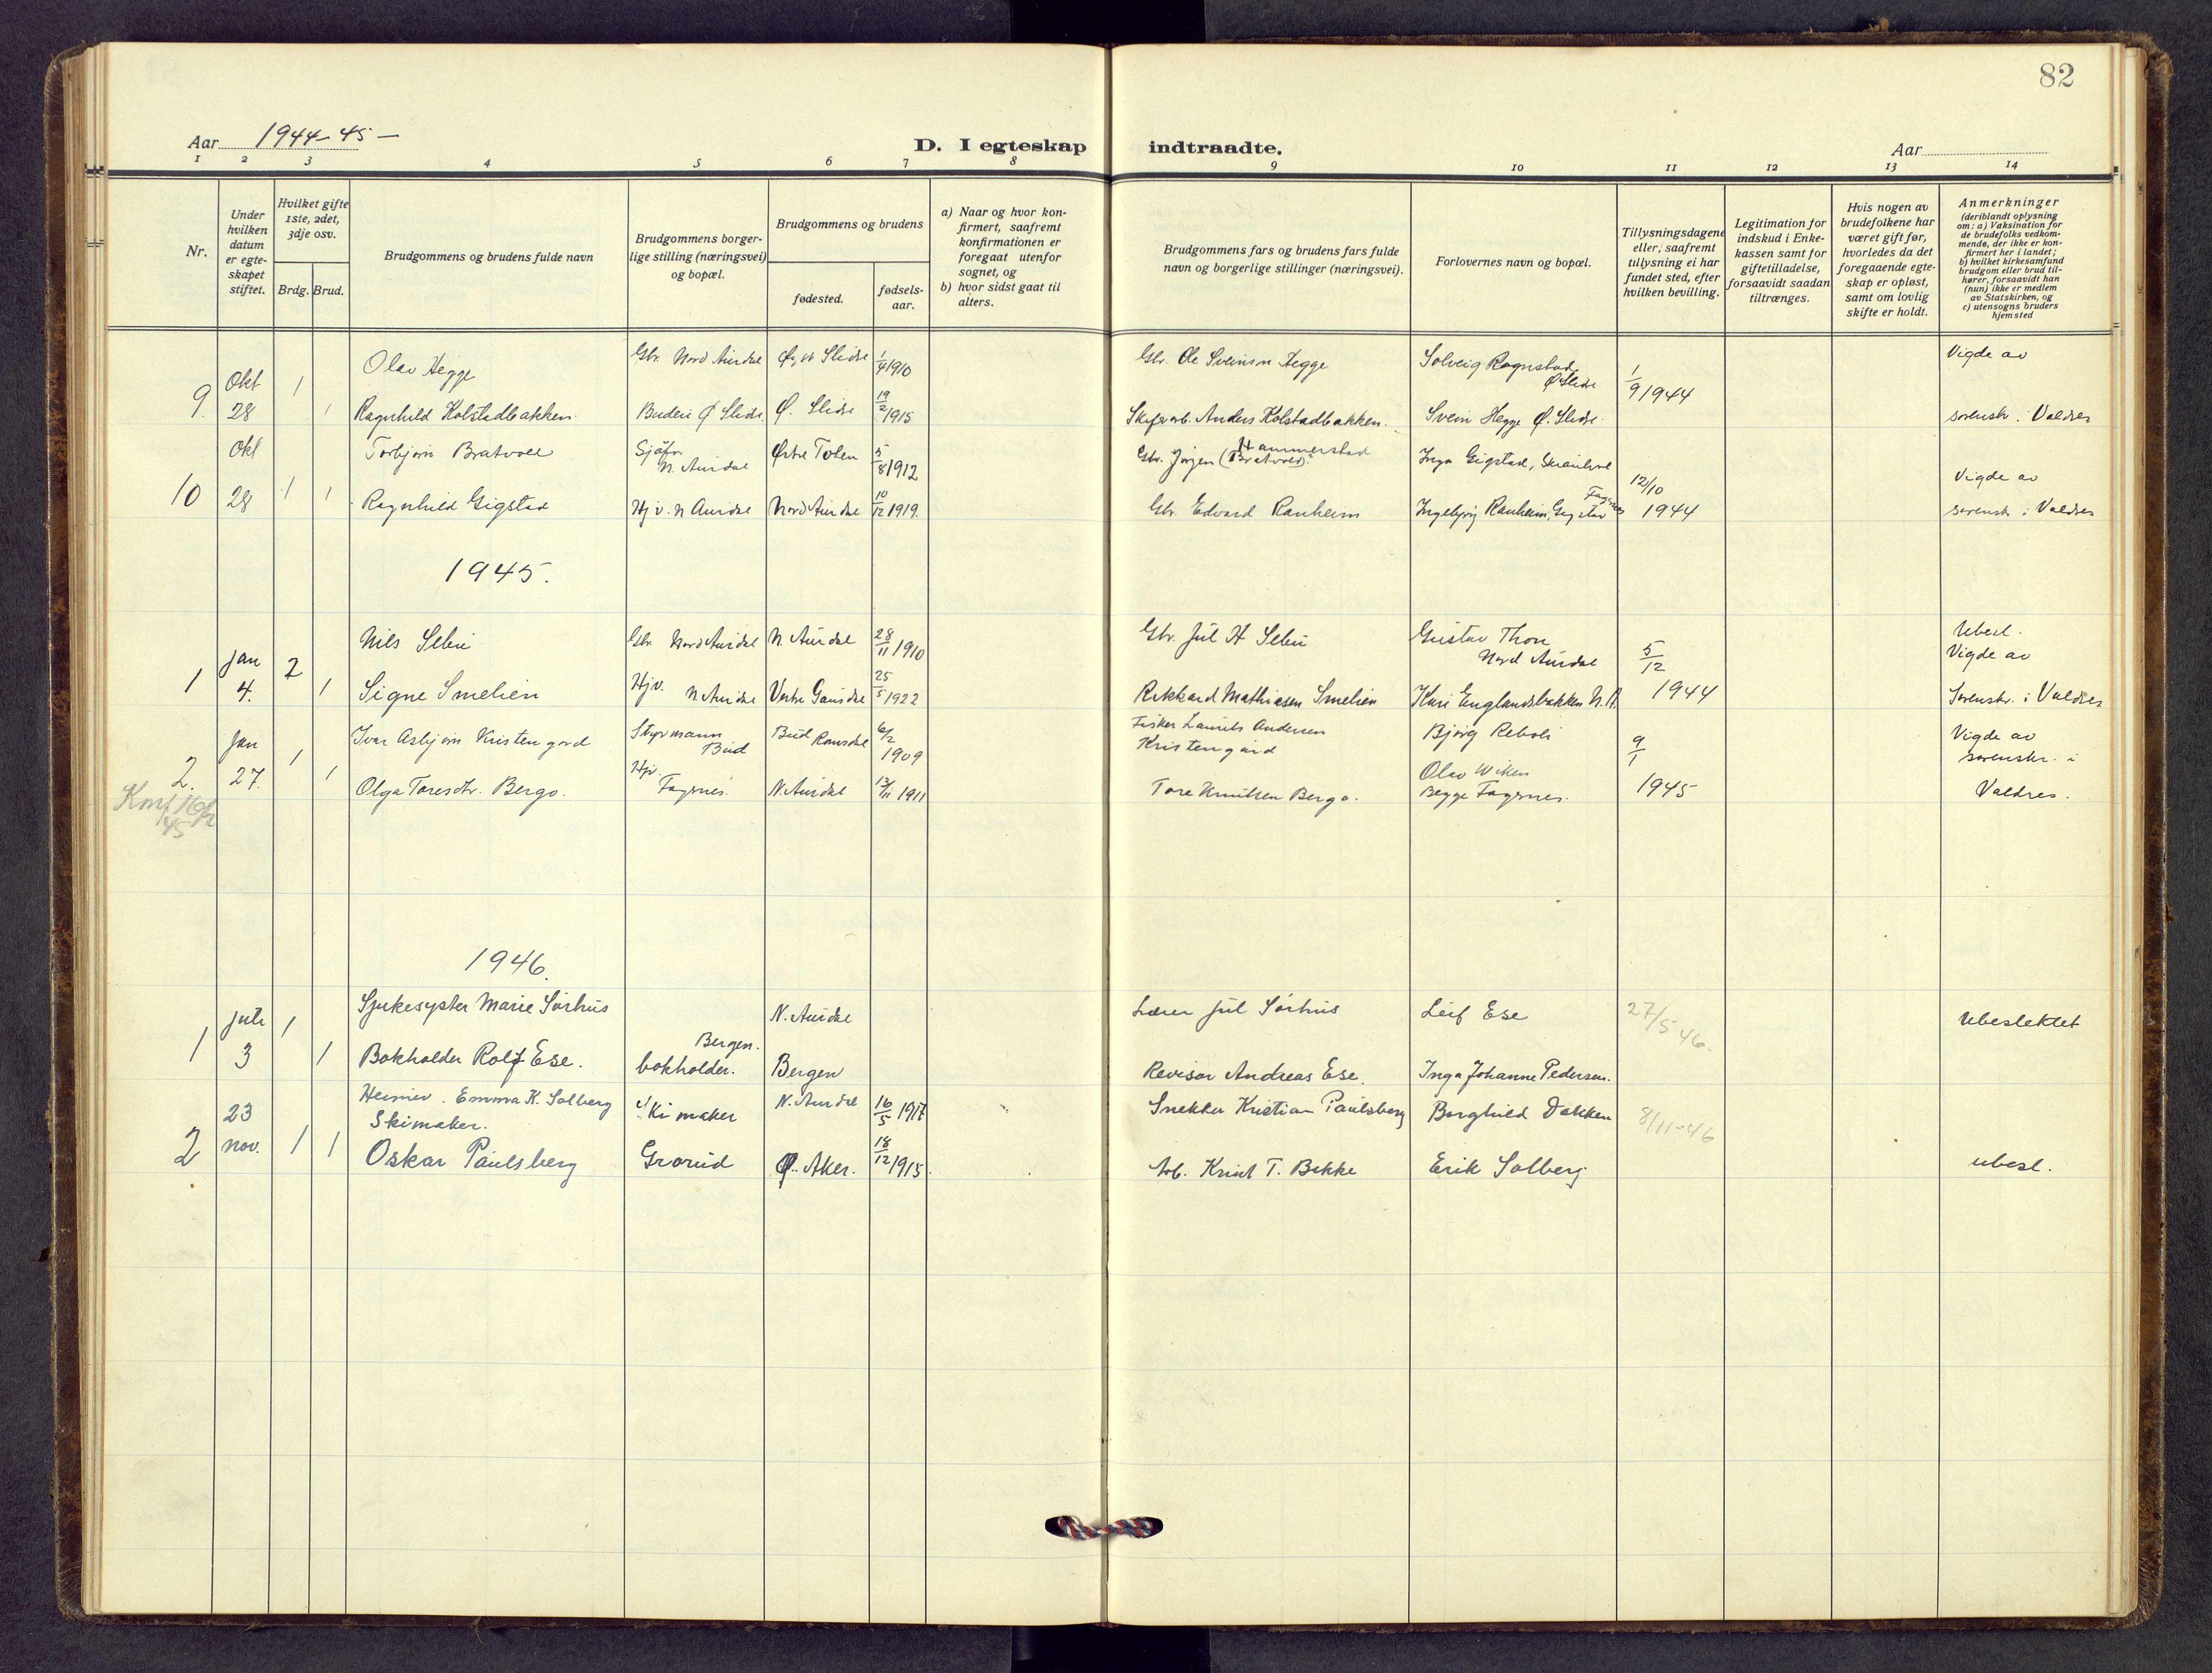 82
Aar 1944-45 —
D. I egteskap indtraadte.
Aar
1 2 3 4 5 6 7 8 9 10 11 12 13 14
Nr.
Under hvilken datum er egte-skapet stiftet.
Hvilket gifte 1ste, 2det, 3dje osv.
Brdg. Brud.
Brudgommens og brudens fulde navn
Brudgommens borger-lige stilling (næringsvei) og bopæl.
Brudgommens og brudens
fødested.
fødsels-aar.
a) Naar og hvor kon-firmert, saafremt konfirmationen er foregaat utenfor sognet, og
b) hvor sidst gaat til alters.
Brudgommens fars og brudens fars fulde navn og borgerlige stillinger (næringsvei).
Forlovernes navn og bopæl.
Tillysningsdagene eller, saafremt tillysning ei har fundet sted, efter hvilken bevilling.
Legitimation for indskud i Enke-kassen samt for giftetilladelse, forsaavidt saadan tiltrænges.
Hvis nogen av brudefolkene har været gift før, hvorledes da det foregaaende egte-skap er opløst, samt om lovlig skifte er holdt.
Anmerkninger (deriblandt oplysning om: a) Vaksination for de brudefolks vedkom-mende, der ikke er kon-firmert her i landet; b) hvilket kirkesamfund brudgom eller brud til-hører, forsaavidt han (hun) ikke er medlem av Statskirken, og c) utensogns bruders hjemsted
9. Okt 28 1 Olav Hegge Gbr. Nord Aurdal Slidre 1/4 1910 Gbr. Ole Hegge Solveig Rognstad Ø Slidre 1/9 1944 Vigde av
1 Ragnhild Kolstadbakken. Budeie Ø Slidre. Ø. Slidre 19/2 1915 Anders Kolstadbakken. Svein Hegge Ø. Slidre. sorenskr. i Valdres
10 Okt 28 1 Torbjørn Bratvold N. Aurdal Østre Toten 5/8 1912 Gbr. Jørgen (Bratvold) Hammerstad Inga Gigstad, 12/10 Vigde av
1 Ragnhild Gigstad Hj v. N Aurdal Nord Aurdal 10/12 1919. Gbr. Edvard Ranheim Ingebjørg Ranheim, Gigstad Fagernes 1944 sorenskr i Valdres
1945.
1 Jan 4. 2 Nils Gbr. Nord Aurdal N. Aurdal 28/11 1910 Gbr. Jul H Gustav Thon Nord Aurdal 5/12 Ubesl. Vigde av
1 Signe Smelien Hjv. N Aurdal Vestre Gausdal 25/5 1922 Rikkard Mathiasen Smelien Kari Englandsbakken N. A. 1944 Sorenskr. i Valdres
2. Jan 27. 1 Ivar Asbjørn Kristengard Styrmann Bud Bud Romsdal 6/2 1909 Fisker Laurits Andersen Kristengård Bjørg Reboli 9/1 Vigde av sorenskr. i
1 Olga Toresdtr. Bergo. Hjv. Fagernes. N. Aurdal 13/11 1911 Tore Knutsen Bergo. Olav Wiken Begge Fagernes. 1945 Valdres.
45
1946.
1 juli 3 1 Sjukesyster Marie Sørhus N. Aurdal Lærer Jul Sørhus Leif Ese 27/5 46. Ubeslektet
1 Bokholder Rolf Ese. Bergen. bokholder. Bergen Revisor Andreas Ese. Inga Johanne Pedersen.
2 23 nov. 1 Emma K. Solberg N. Aurdal 16/5 1917 Snekker Kristian Paulsberg Borghild Dokken 8/11-46
1 Skimaker. Oskar Paulsberg Skimaker Grorud Ø. Aker. 18/12 1915. Arb. Knut T. Bakke Erik Solberg ubesl.